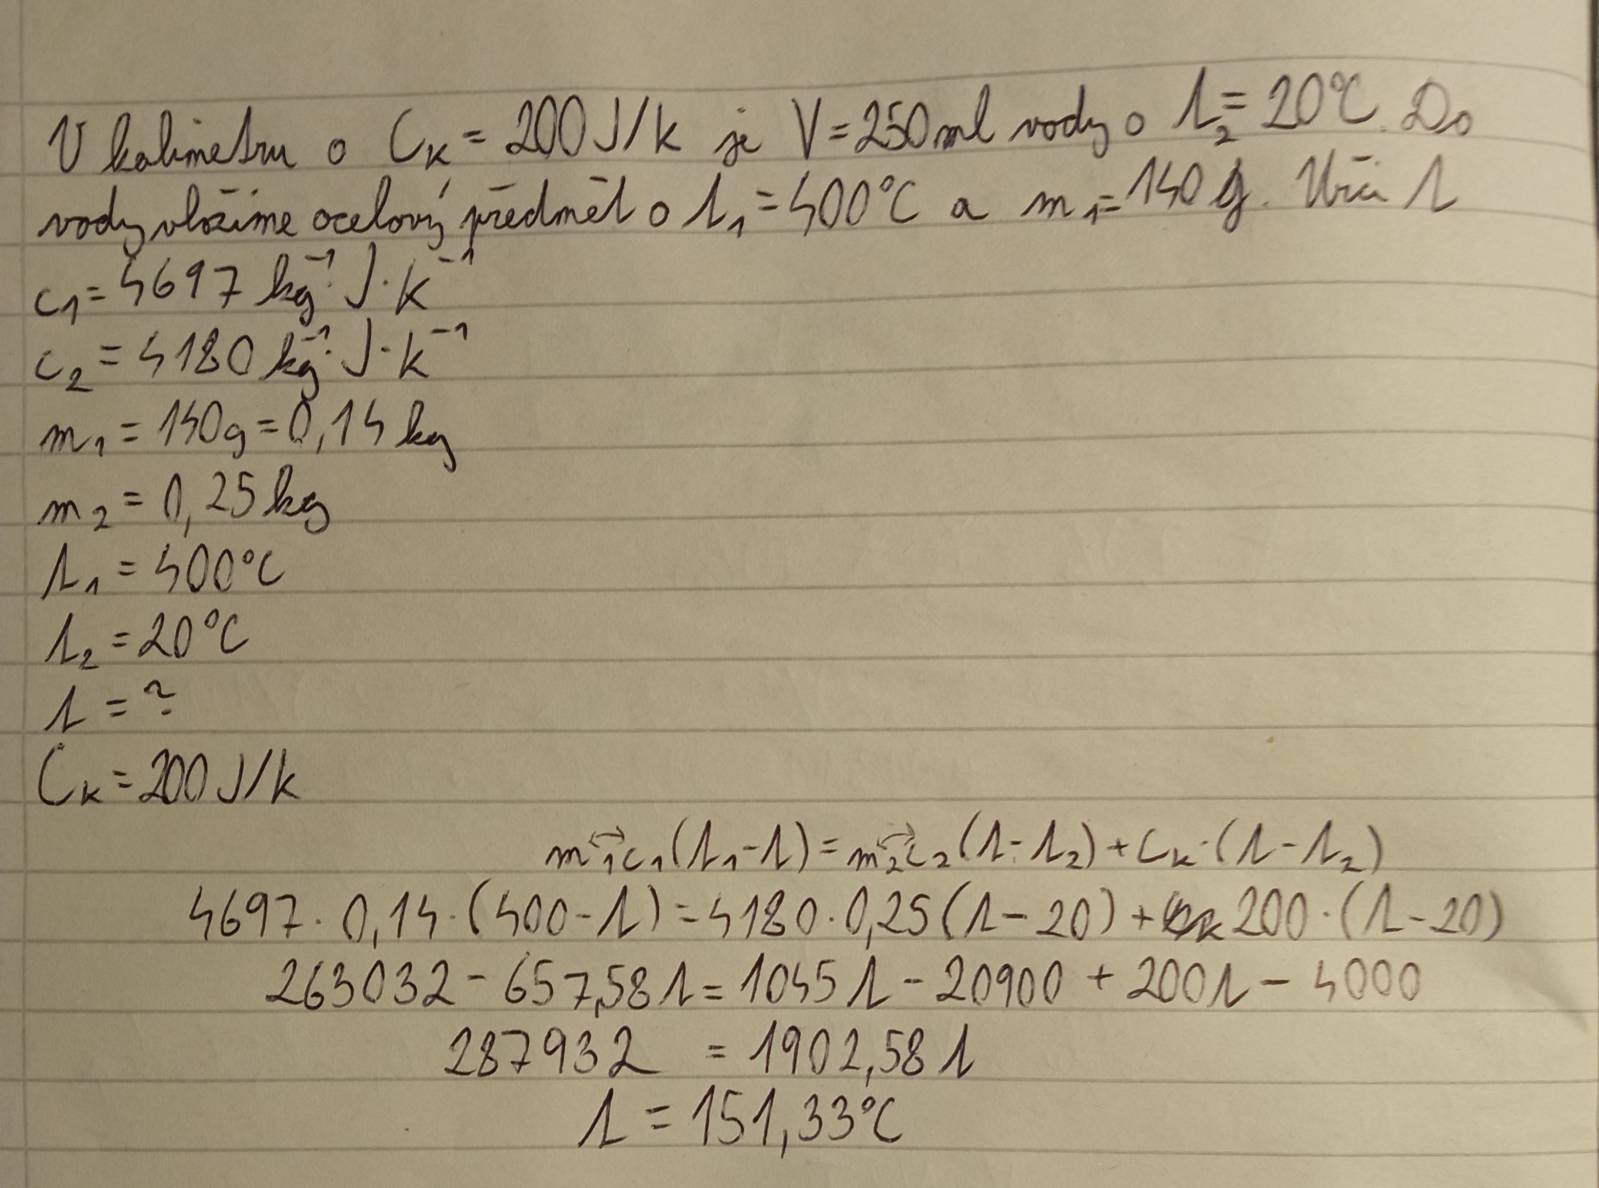 V kalimetru o Cₖ = 200 J/k je V = 250 ml vody o t₂ = 20°C. Do
vody vložíme ocelový předmět o t₁ = 400°C a m₁ = 140 g. Urči t
c₁ = 4697 kg⁻¹·J·k⁻¹
c₂ = 4180 kg⁻¹·J·k⁻¹
m₁ = 140g = 0,14 kg
m₂ = 0,25 kg
t₁ = 400°C
t₂ = 20°C
t = ?
Cₖ = 200 J/k
m₁c₁(t₁-t) = m₂c₂(t-t₂) + Cₖ·(t-t₂)
4697·0,14·(400-t) = 4180·0,25(t-20) + 200·(t-20)
263032 - 657,58t = 1045t - 20900 + 200t - 4000
287932 = 1902,58t
t = 151,33°C